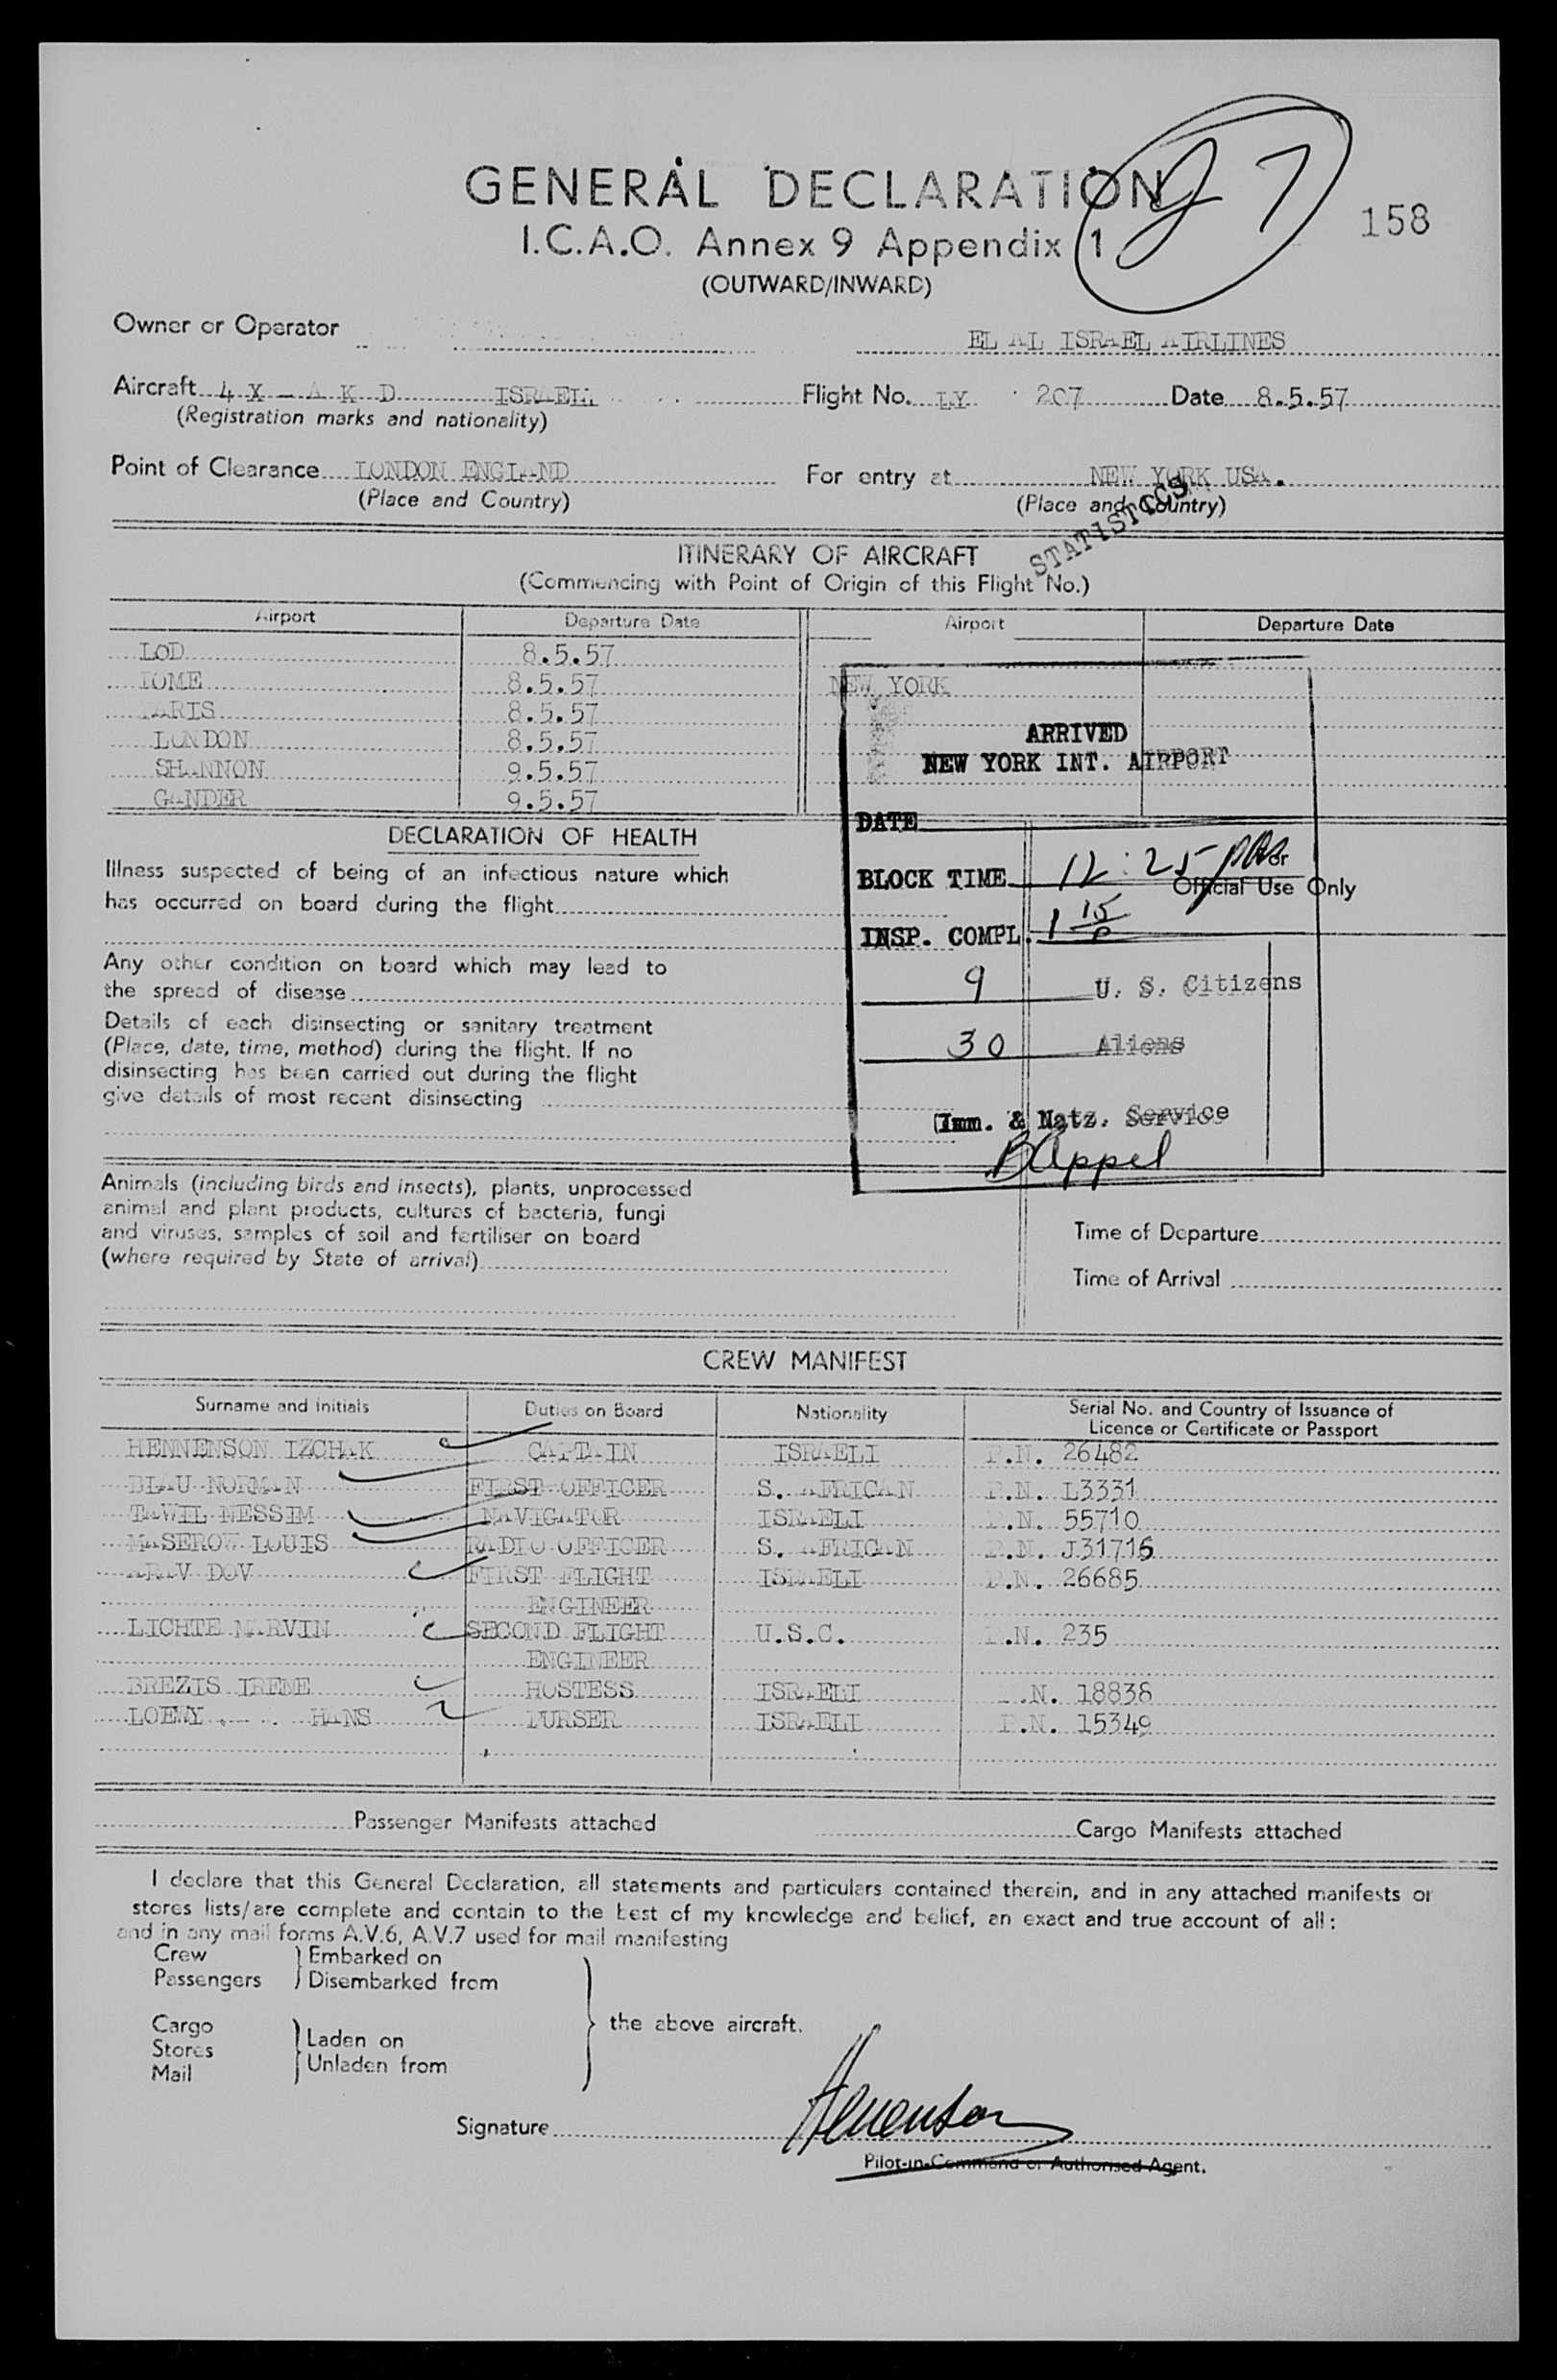 GENERAL DECLARATION
I.C.A.O. Annex 9 Appendix 1
158
(OUTWARD/INWARD)
Owner or Operator EL AL ISRAEL AIRLINES
Aircraft 4 X - A K D ISRAEL Flight No. LY 207 Date 8.5.57
(Registration marks and nationality)
Point of Clearance LONDON ENGLAND For entry at NEW YORK USA.
(Place and Country) (Place and Country)
STATISTICS
ITINERARY OF AIRCRAFT
(Commencing with Point of Origin of this Flight No.)
Airport Departure Date Airport Departure Date
LOD 8.5.57
ROME 8.5.57 NEW YORK
PARIS 8.5.57
LONDON 8.5.57
SHANNON 9.5.57
GANDER 9.5.57
ARRIVED
NEW YORK INT. AIRPORT
DATE
BLOCK TIME 12:25 pm
INSP. COMPL. 1 15 P
9 U. S. Citizens
30 Aliens
Imm. & Natz. Service
B Appel
For
Official Use Only
DECLARATION OF HEALTH
Illness suspected of being of an infectious nature which
has occurred on board during the flight
Any other condition on board which may lead to
the spread of disease
Details of each disinsecting or sanitary treatment
(Place, date, time, method) during the flight. If no
disinsecting has been carried out during the flight
give details of most recent disinsecting
Animals (including birds and insects), plants, unprocessed
animal and plant products, cultures of bacteria, fungi
and viruses, samples of soil and fertiliser on board
(where required by State of arrival)
Time of Departure
Time of Arrival
CREW MANIFEST
Surname and Initials Duties on Board Nationality Serial No. and Country of Issuance of
Licence or Certificate or Passport
HENNENSON IZCHAK CAPTAIN ISRAELI P.N. 26482
BLAU NORMAN FIRST OFFICER S. AFRICAN P.N. L3331
TAWIL NESSIM NAVIGATOR ISRAELI P.N. 55710
MASEROW LOUIS RADIO OFFICER S. AFRICAN P.N. J31716
ARAV DOV FIRST FLIGHT ISRAELI P.N. 26685
ENGINEER
LICHTE MARVIN SECOND FLIGHT U.S.C. P.N. 235
ENGINEER
BREZIS IRENE HOSTESS ISRAELI P.N. 18838
LOEWY HANS PURSER ISRAELI P.N. 15349
Passenger Manifests attached Cargo Manifests attached
I declare that this General Declaration, all statements and particulars contained therein, and in any attached manifests or
stores lists/are complete and contain to the best of my knowledge and belief, an exact and true account of all:
and in any mail forms A.V.6, A.V.7 used for mail manifesting
Crew Embarked on
Passengers Disembarked from
the above aircraft.
Cargo
Stores Laden on
Mail Unladen from
Signature Hennenson
Pilot-in-Command or Authorised Agent.